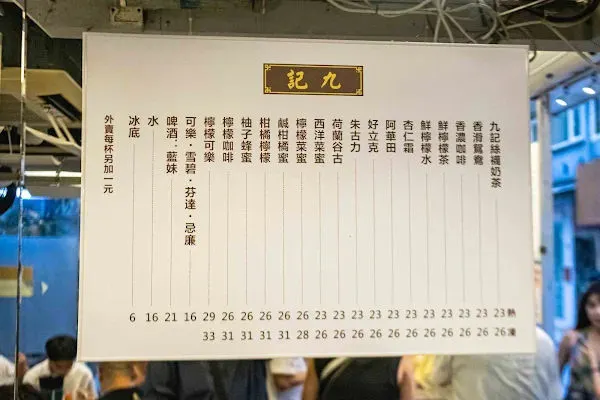 九記
熱 凍
九記絲襪奶茶 23 26
香滑鴛鴦 23 26
香濃咖啡 23 26
鮮檸檬茶 23 26
鮮檸檬水 23 26
杏仁霜 23 26
阿華田 23 26
好立克 23 26
朱古力 23 26
荷蘭谷古 23 26
西洋菜蜜 23 26
檸檬菜蜜 26 28
鹹柑橘蜜 26 31
柑橘檸檬 26 31
柚子蜂蜜 26 31
檸檬咖啡 26 31
檸檬可樂 29 33
可樂・雪碧・芬達・忌廉 16
啤酒：藍妹 21
水 16
冰底 6
外賣每杯另加一元